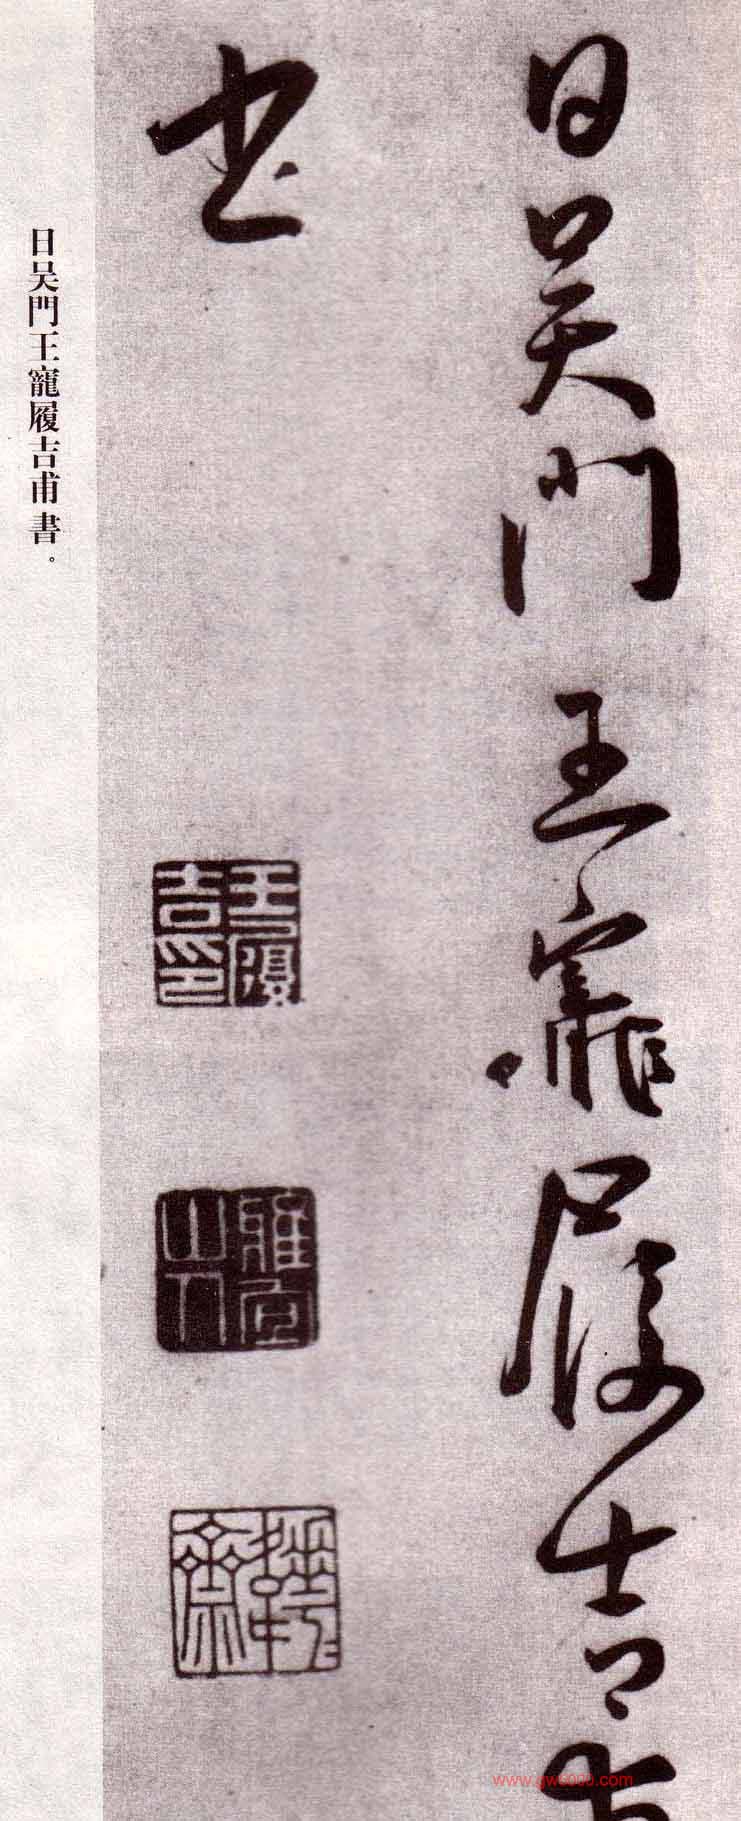 日吴門王寵履吉甫
书
王履
吉印
雅宜
山人
齋
日吴門王寵履吉甫書。
www.gw8000.com